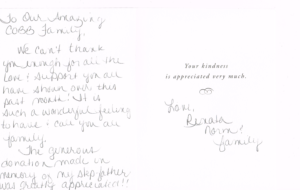 To Our Amazing
COBB Family.
We can't thank
you enough for all the
love & support you all
have shown over this
past month! It is
such a wonderful feeling
to have & call you all
family.
The generous
donation made in
memory of my step father
was greatly appreciated!!
Your kindness
is appreciated very much.
Love,
Norm &
family